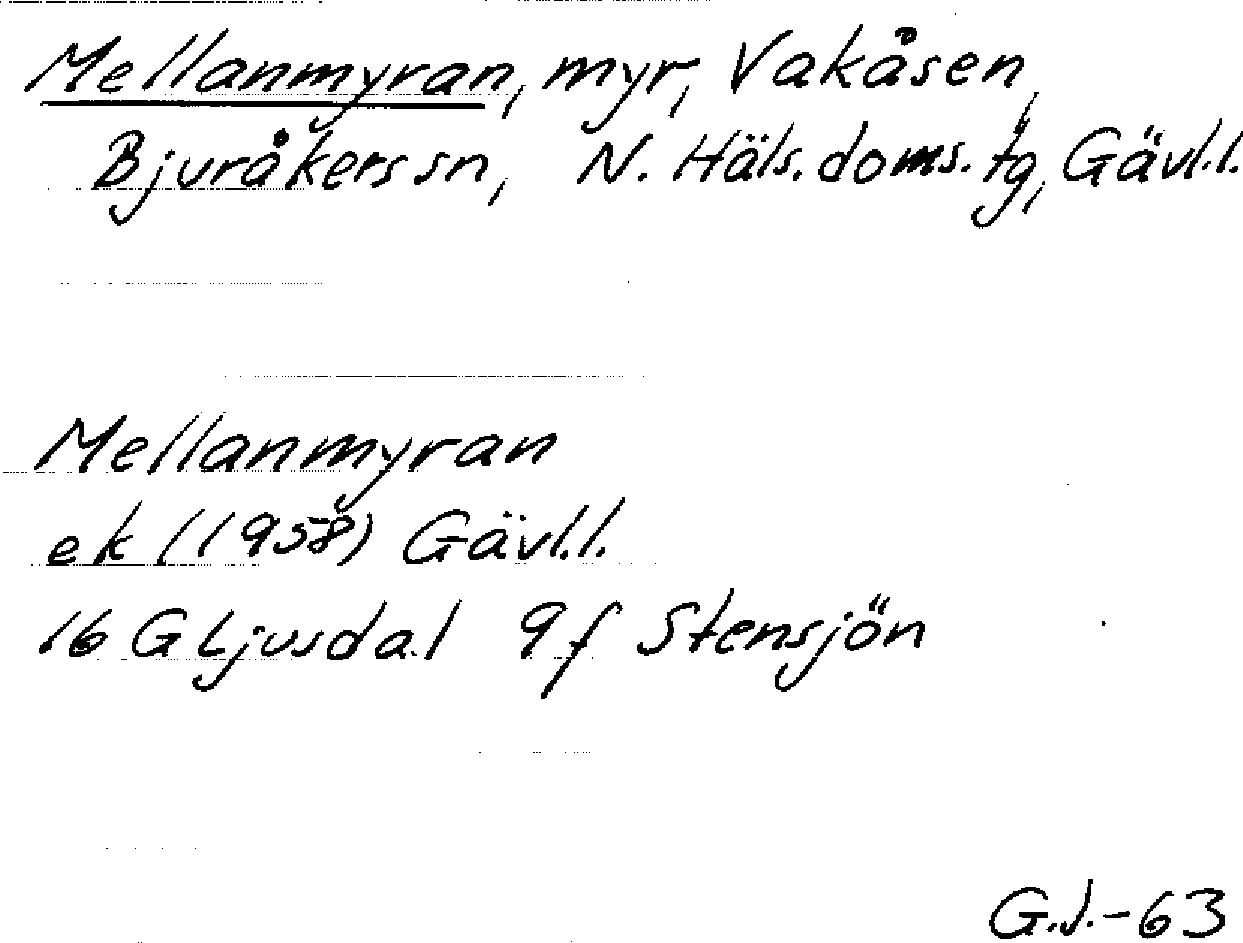 Mellanmyran, myr, Vakåsen,
Bjuråkers sn, N. Häls. doms. tg, Gävl.l.
Mellanmyran
ek (1958) Gävl.l.
16 G Ljusdal 9f Stensjön
G.J.-63